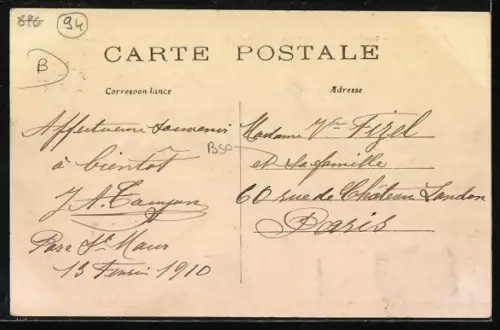 94
B
CARTE POSTALE
Correspondance
Adresse
Affectueux souvenir
à bientôt
J. A.
Parc St Maur
13 Février 1910
BSP
Madame Vve Fizel
et sa famille
60 rue de Château Landon
Paris